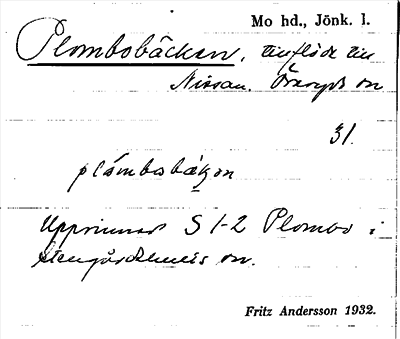 Mo hd., Jönk. l.
Plombobäcken, tillflöde till
Nissan. Öreryds sn
31.
plómbobäkon
Upprinner S 1-2 Plombo i
Stengårdshults sn.
Fritz Andersson 1932.